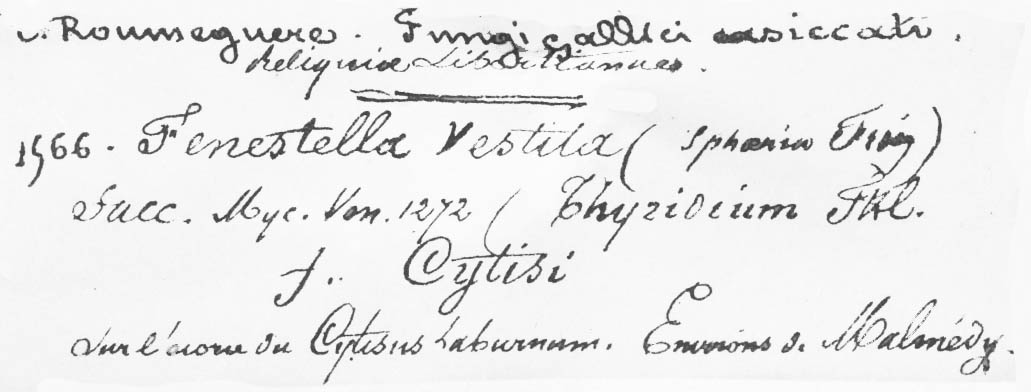 c. Roumeguere. Fungi gallici exsiccati.
Reliquiae Libertianae.
1566. Fenestella Vestita (Sphaeria Fries)
Sacc. Myc. Ven. 1272 ( Thyridium Fkl.
f. Cytisi
Sur l'écorce du Cytisus Laburnum. Environs de Malmédy.